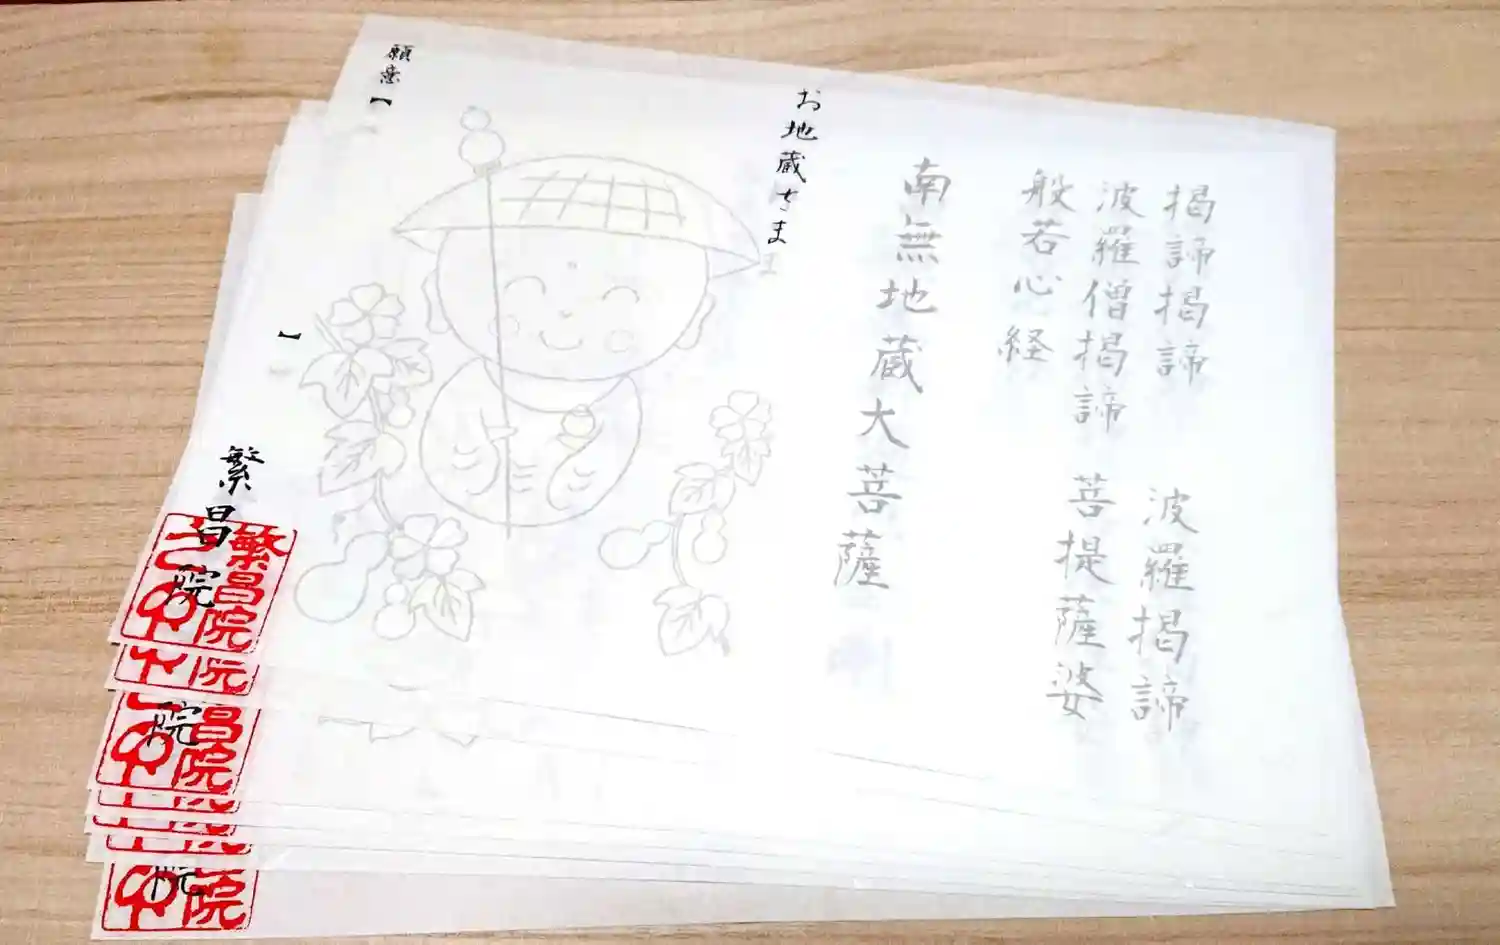 揭諦揭諦　波羅揭諦
波羅僧揭諦　菩提薩婆
般若心経
南無地蔵大菩薩
お地蔵さま
願意【
】
繁昌院
繁昌院
院
昌院
院
院
院